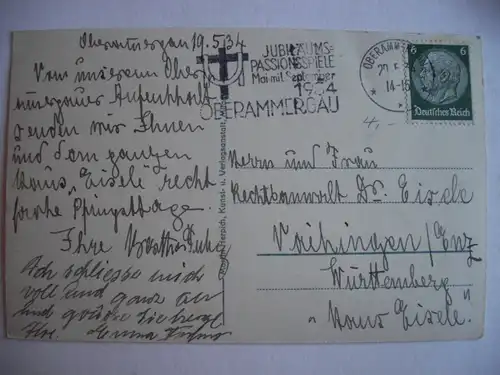 Oberammergau 19.5.34
Von unserem Ober-
ammergauer Aufenthalt
senden wir Ihnen
und dem ganzen
Haus "Eisele" recht
frohe Pfingsttage.
Ihre
Ich schliesse mich
voll und ganz an
und grüsse Sie herzl.
Ihre Emma
JUBILÄUMS=
PASSIONSSPIELE
Mai mit September
1934
OBERAMMERGAU
OBERAMMERGAU
14-15
6 6
Deutsches Reich
4,-
Herrn und Frau
Rechtsanwalt Dr. Eisele
Vaihingen/Enz
Württemberg
"Haus Eisele".